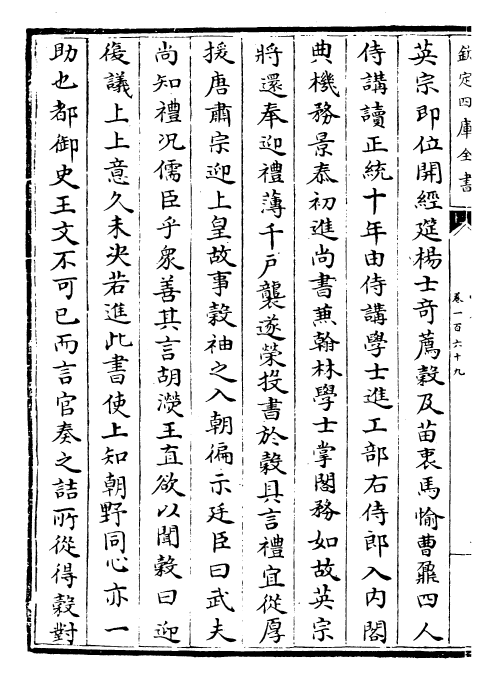 欽定四庫全書
卷一百六十九
英宗即位開經筵楊士奇薦穀及苗衷馬愉曹鼐四人
侍講讀正統十年由侍講學士進工部右侍郎入內閣
典機務景泰初進尚書兼翰林學士掌閣務如故英宗
將還奉迎禮薄千户龔遂榮投書於穀具言禮宜從厚
援唐肅宗迎上皇故事穀袖之入朝徧示廷臣曰武夫
尚知禮况儒臣乎衆善其言胡濙王直欲以聞穀曰迎
復議上上意久未决若進此書使上知朝野同心亦一
助也都御史王文不可已而言官奏之詰所從得穀對